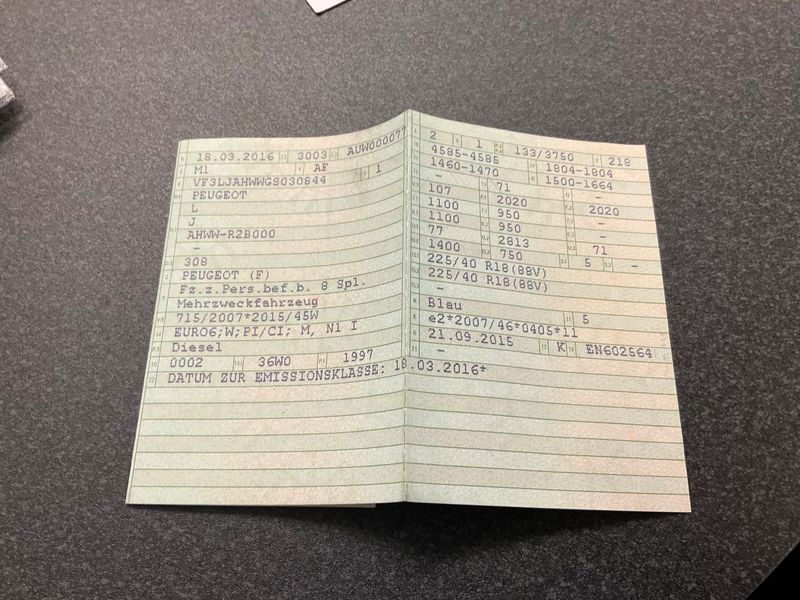 18.03.2016 3003 AUW000077
M1 AF 1
VF3LJAHWWGS030844
PEUGEOT
L
J
AHWW-R2B000
–
308
PEUGEOT (F)
Fz.z.Pers.bef.b. 8 Spl.
Mehrzweckfahrzeug
715/2007*2015/45W
EURO6;W;PI/CI; M, N1 I
Diesel
0002 36W0 1997
DATUM ZUR EMISSIONSKLASSE: 18.03.2016*
2 1 133/3750 218
4585-4585 1804-1804
1460-1470 1500-1664
– 71 –
107 2020 2020
1100 950
1100 950
77 2813 71
1400 750 5 –
225/40 R18(88V)
225/40 R18(88V)
–
Blau 5
e2*2007/46*0405*11
21.09.2015 K EN602564
–